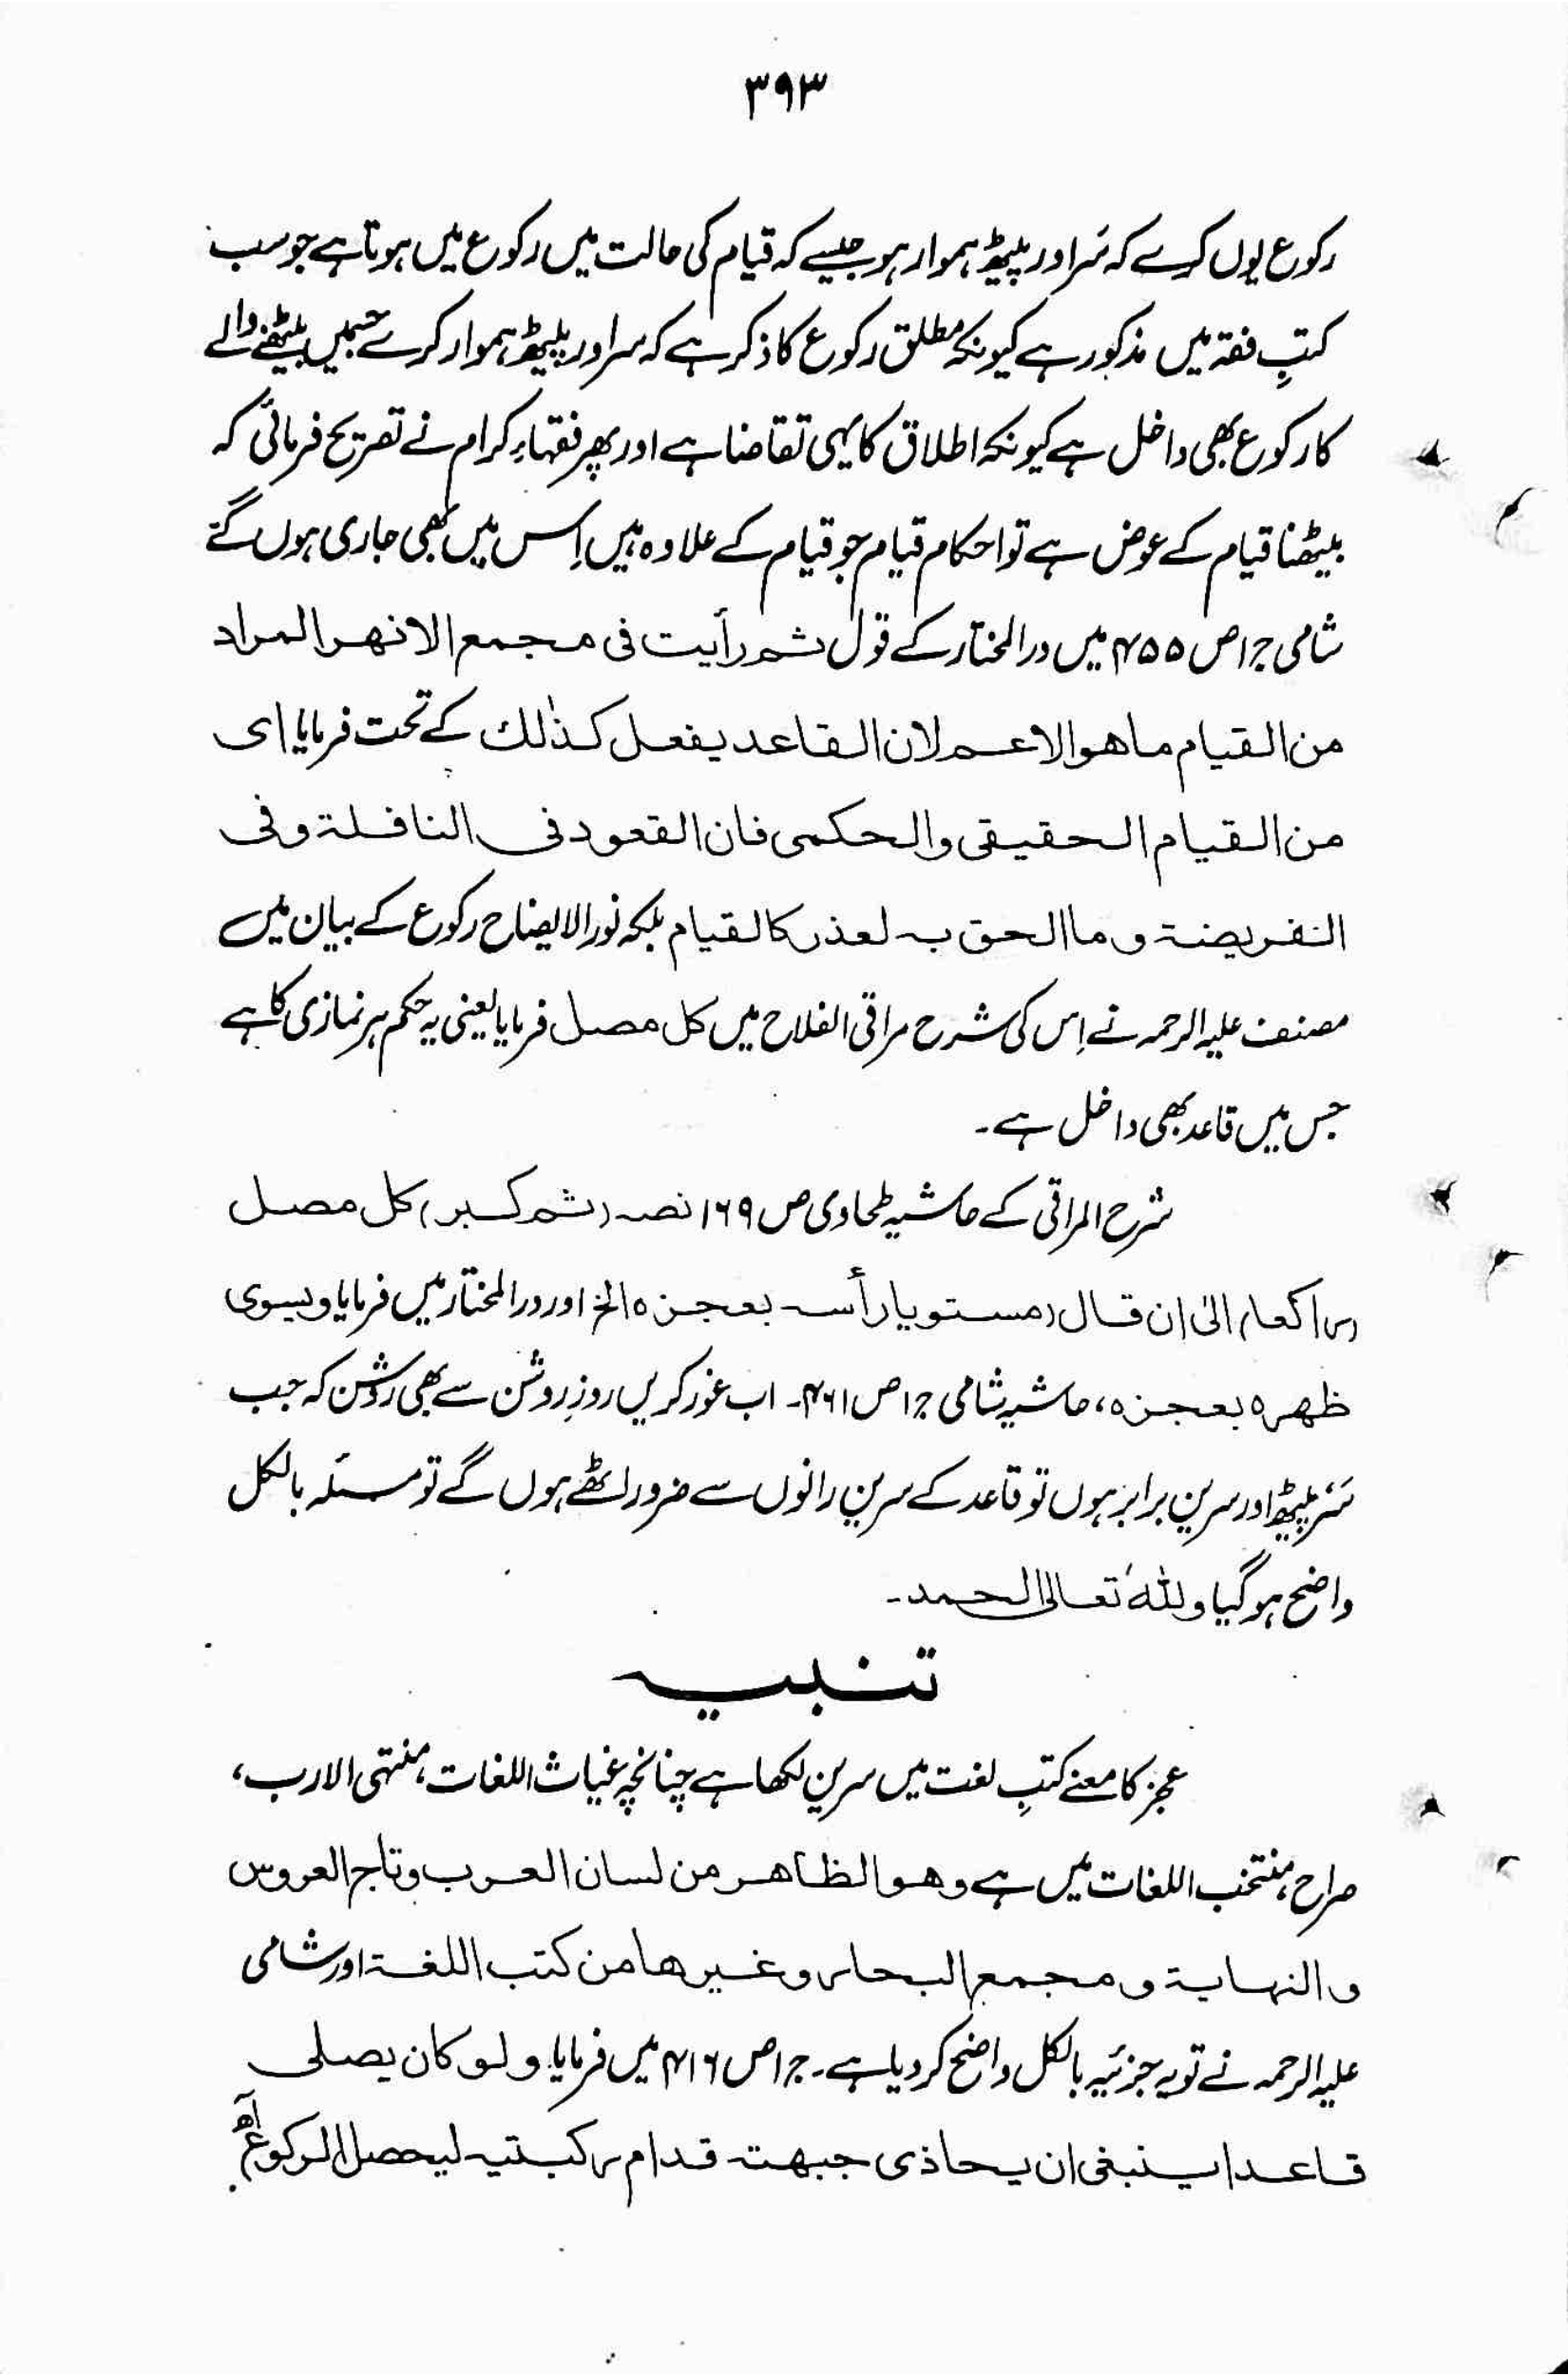 ۳۹۳
رکوع یوں کرے کہ سَر اور پیٹھ ہموار ہو جیسے کہ قیام کی حالت میں رکوع میں ہوتا ہے جو سب
کتبِ فقہ میں مذکور ہے کیونکہ مطلق رکوع کا ذکر ہے کہ سر اور پیٹھ ہموار کرے جسمیں بیٹھنے والے
کا رکوع بھی داخل ہے کیونکہ اطلاق کا یہی تقاضا ہے اور پھر فقہاءِ کرام نے تصریح فرمائی کہ
بیٹھنا قیام کے عوض ہے تو احکام قیام جو قیام کے علاوہ ہیں اِس میں بھی جاری ہوں گے
شامی ج ۱ ص ۴۵۵ میں درالمختار کے قول ثم رأیت فی مجمع الانھر المراد
من القیام ماھو الاعم لان القاعد یفعل کذٰلك کے تحت فرمایا ای
من القیام الحقیقی والحکمی فان القعود فی النافلۃ وفی
الفریضۃ وما الحق بہ لعذر کالقیام بلکہ نور الایضاح رکوع کے بیان میں
مصنف علیہ الرحمہ نے اِس کی شرح مراقی الفلاح میں کل مصل فرمایا یعنی یہ حکم ہر نمازی کا ہے
جس میں قاعد بھی داخل ہے۔
شرح المراقی کے حاشیہ طحاوی ص ۱۶۹ نصہ (ثم کبر) کل مصل
(راکعا) الیٰ ان قال (مستویا رأسہ بعجزہ الخ اور درالمختار میں فرمایا ویسوی
ظھرہ بعجزہ، حاشیہ شامی ج ۱ ص ۴۶۱۔ اب غور کریں روزِ روشن سے بھی روشن کہ جب
سَر، پیٹھ اور سرین برابر ہوں تو قاعد کے سرین رانوں سے ضرور اٹھے ہوں گے تو مسئلہ بالکل
واضح ہو گیا وللّٰہ تعالیٰ الحمد۔
تنبیہ
عجز کا معنے کتبِ لغت میں سرین لکھا ہے چنانچہ غیاث اللغات، منتھی الارب،
صراح، منتخب اللغات میں ہے وھو الظاھر من لسان العرب وتاج العروس
والنہایۃ ومجمع البحار وغیرھا من کتب اللغۃ اور شامی
علیہ الرحمہ نے تو یہ جزئیہ بالکل واضح کر دیا ہے۔ ج ۱ ص ۴۱۶ میں فرمایا ولو کان یصلی
قاعدا ینبغی ان یحاذی جبھتہ قدام رکبتیہ لیحصل الرکوع اھ